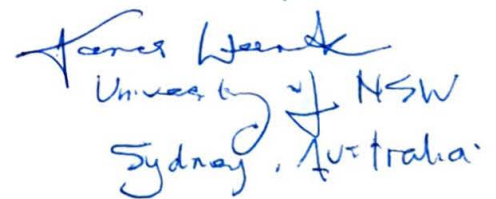 James
University of NSW
Sydney, Australia.